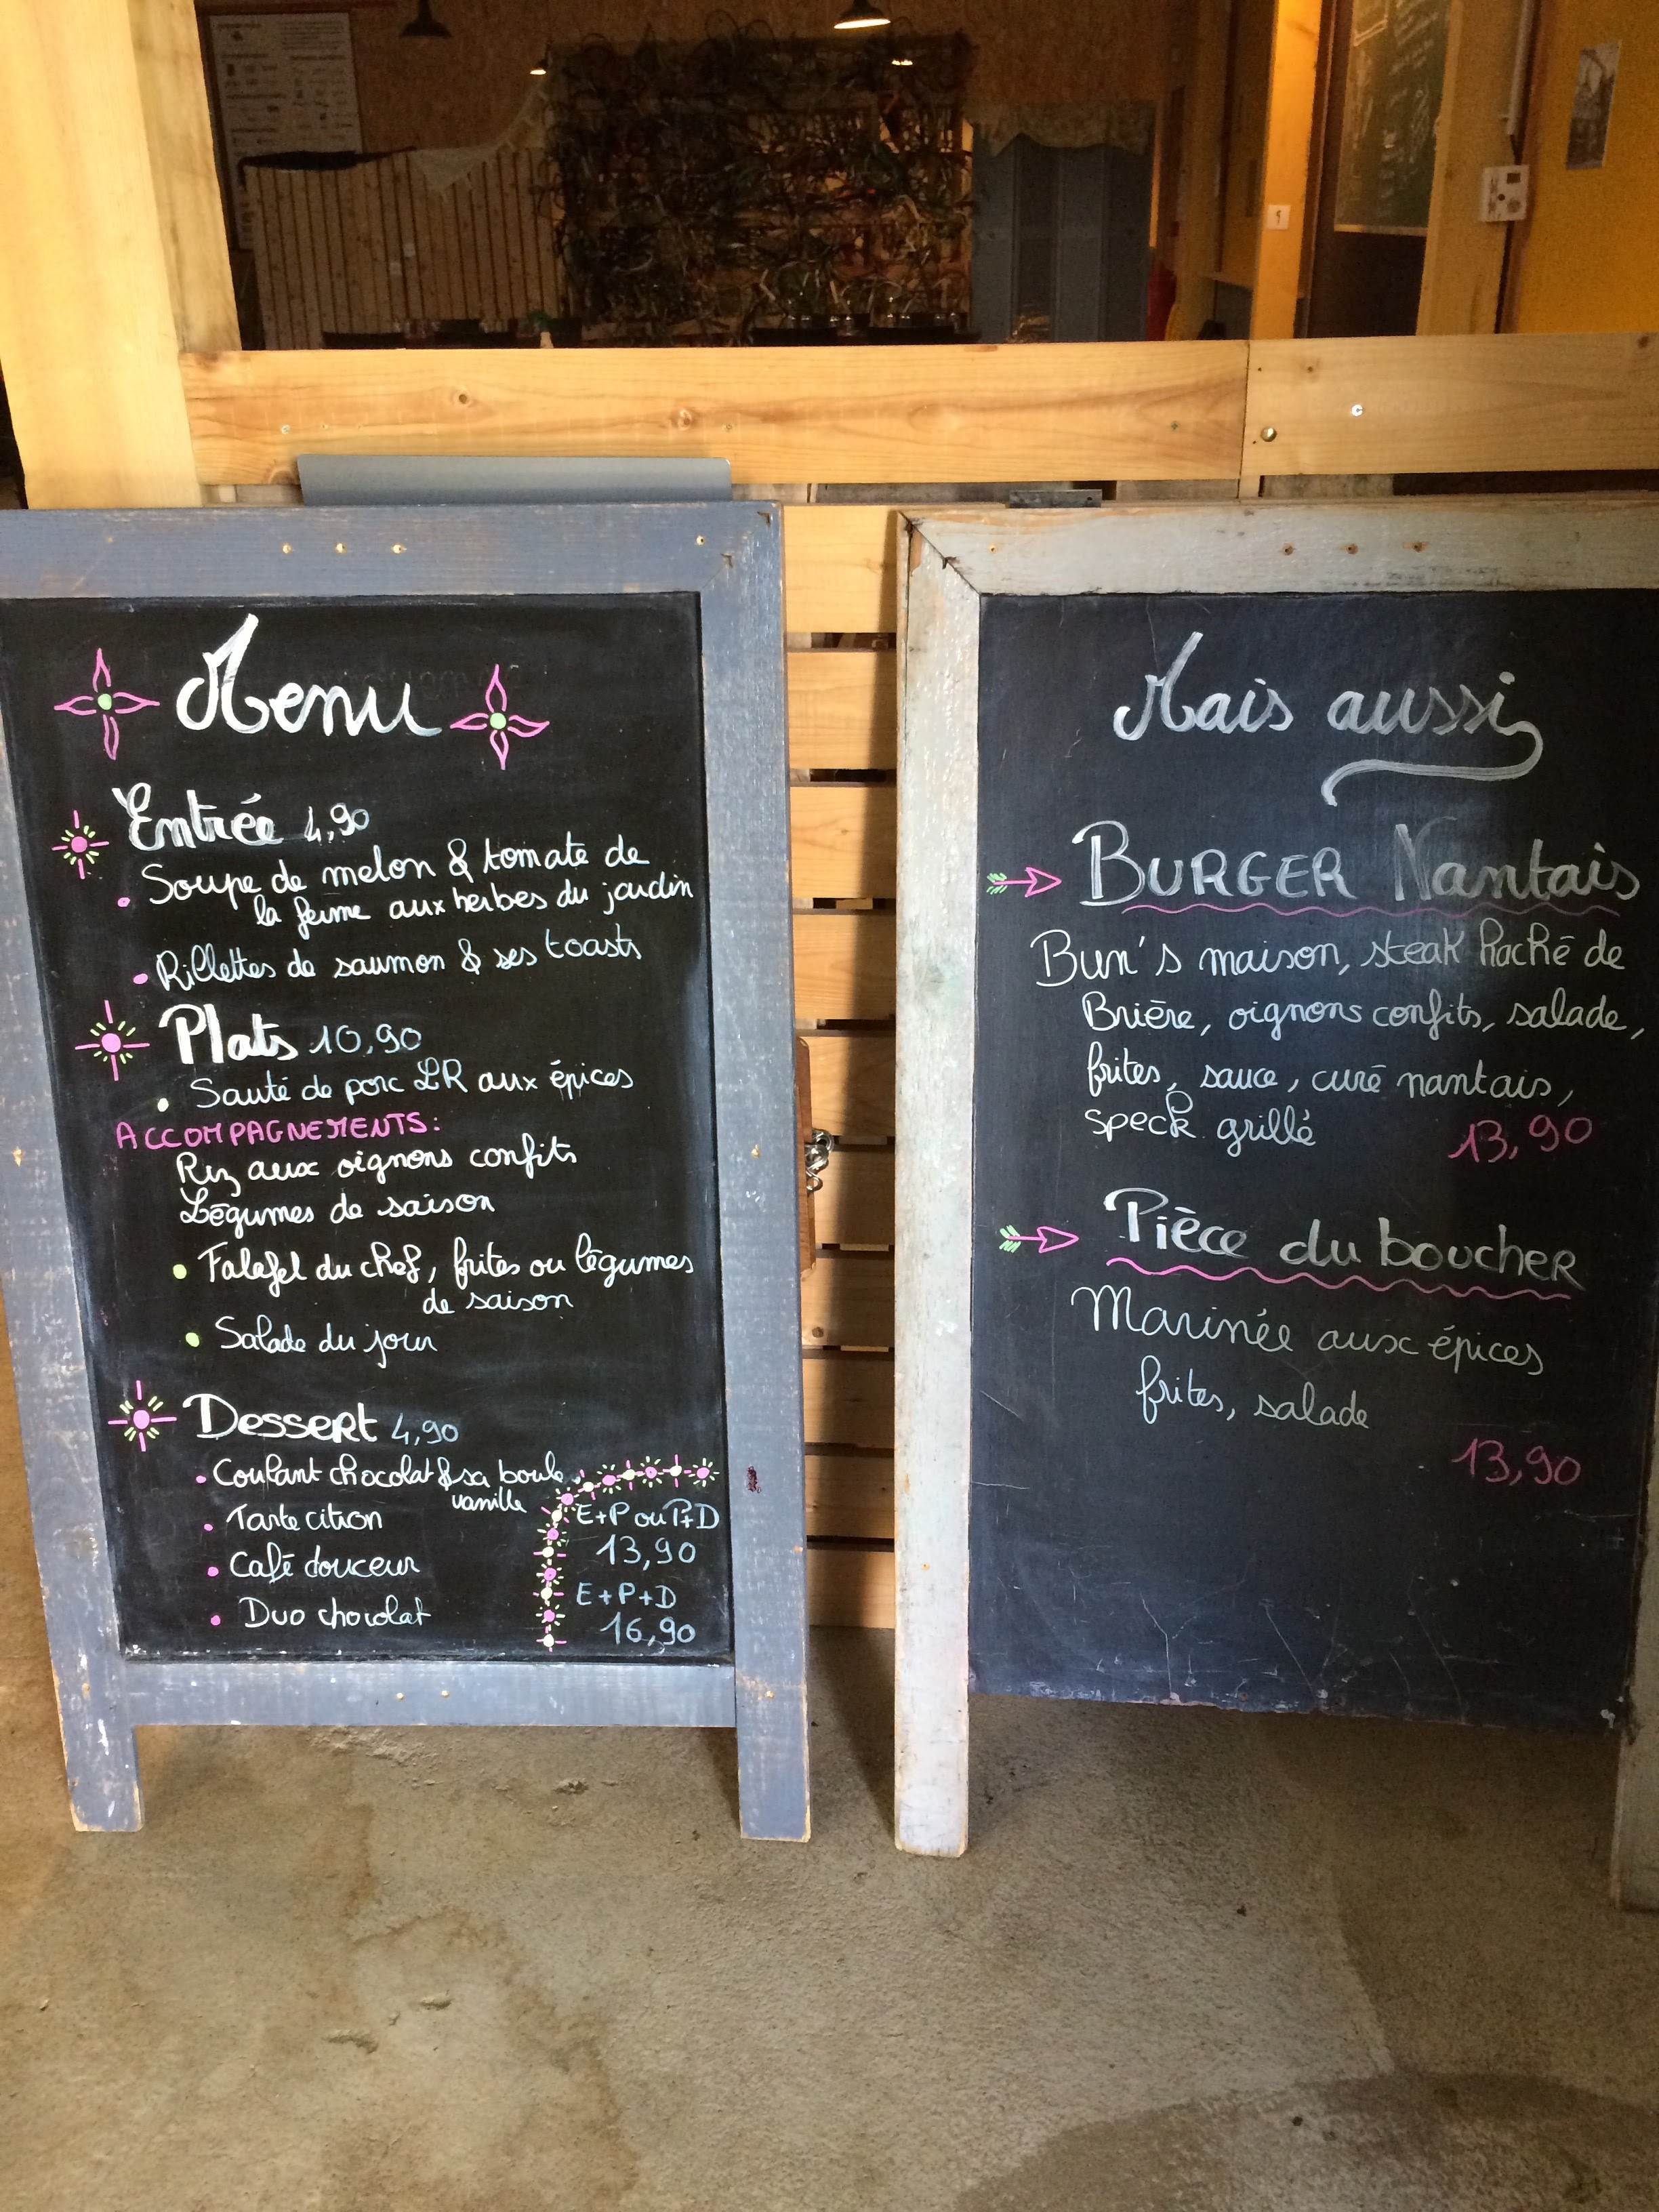 Menu
Entrée 4,90
Soupe de melon & tomate de
la ferme aux herbes du jardin
Rillettes de saumon & ses toasts
Plats 10,90
Sauté de porc LR aux épices
ACCOMPAGNEMENTS:
Riz aux oignons confits
Légumes de saison
Falafel du chef, frites ou légumes
de saison
Salade du jour
Dessert 4,90
Coulant chocolat & sa boule
vanille
Tarte citron
Café douceur
Duo chocolat
E+P ou P+D
13,90
E+P+D
16,90
Mais aussi
BURGER Nantais
Bun's maison, steak haché de
Brière, oignons confits, salade,
frites, sauce, curé nantais,
speck grillé
13,90
Pièce du boucher
Marinée aux épices
frites, salade
13,90